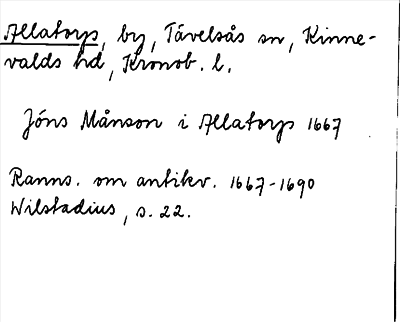 Allatorp, by, Tävelsås sn, Kinne-
valds hd, Kronob. l.
Jöns Månson i Allatorp 1667
Ranns. om antikv. 1667-1690
Wilstadius, s. 22.